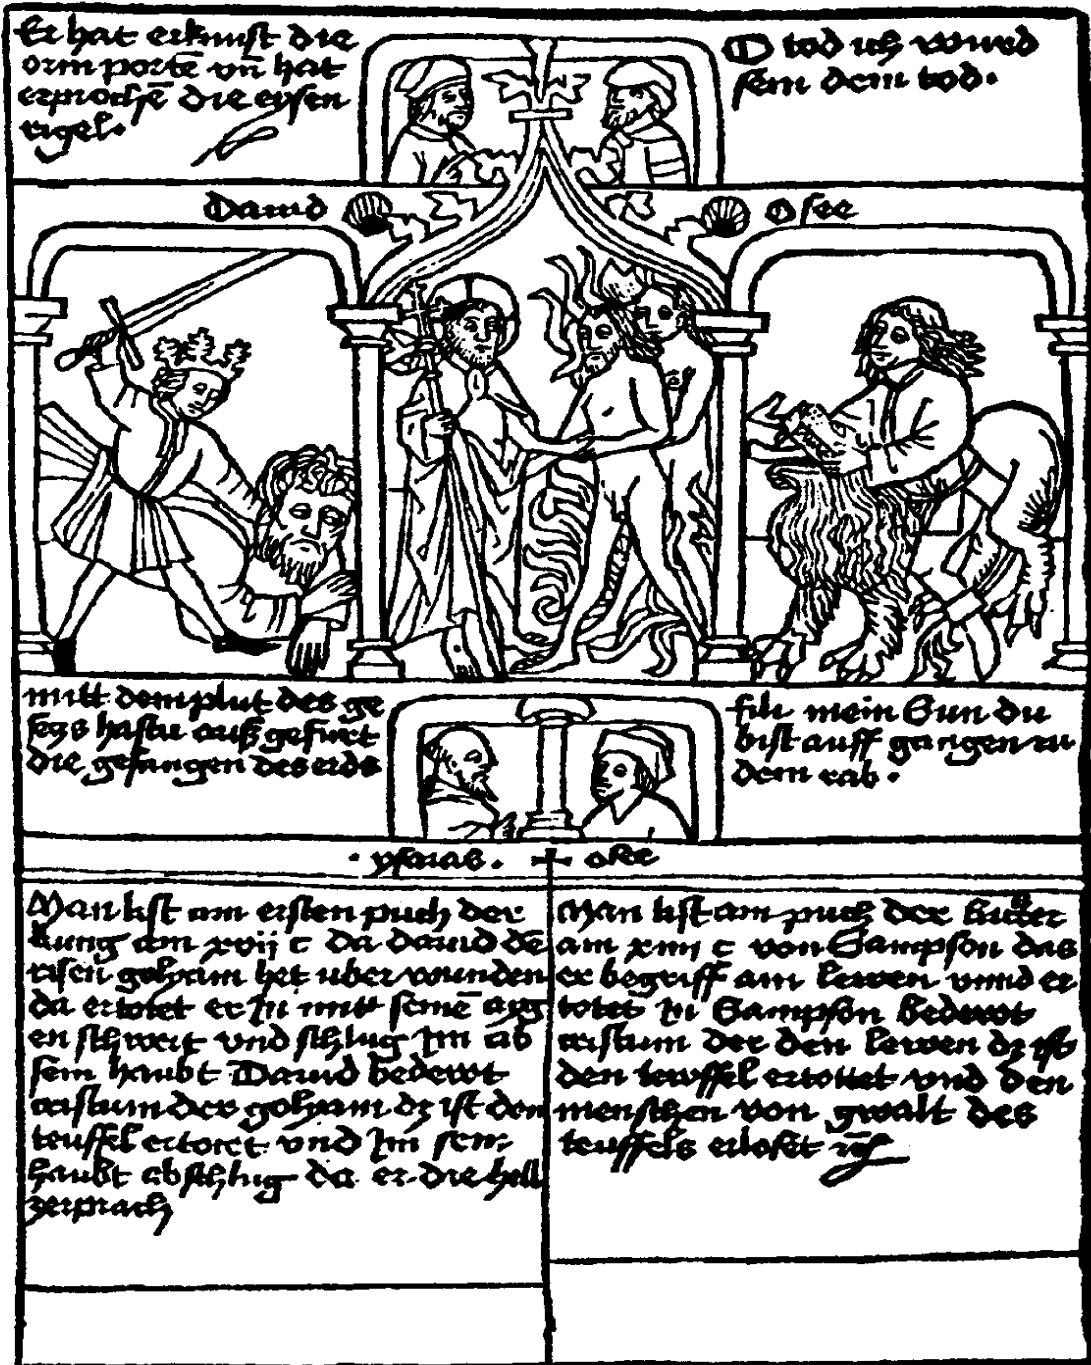 Er hat erknust die
orin porte vn̄ hat
erprochē die eysen
rigel.
O tod ich wurd
sein dem tod.
Dauid
Osee
mitt dem plut des ge
seys hastu auß gefurt
die gefangen des erds
fili mein Sun du
bist auff gangen zu
dem rab.
. ysaias . osee
Man list am ersten puch der
kung am xvij c da dauid dē
risen golyam het uber wunden
da ertotet er in mitt seinē ayg
en schwert vnd schlug im ab
sein haubt Dauid bedewt
cristum der golyam dz ist den
teuffel ertotet vnd im sein
haubt abschlug da er die hell
zerprach
Man list am puch der Richter
am xiiij c von Sampson das
er begriff ain lewen vnnd er
totet in Sampson bedewt
cristum der den lewen dz ist
den tewffel ertottet vnd den
menschen von gwalt des
teuffels erloset